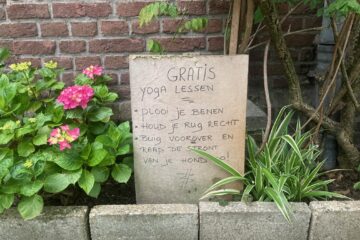 GRATIS
YOGA LESSEN
• PLOOI JE BENEN
• HOUD JE RUG RECHT
• BUIG VOOROVER EN
RAAP DE STRONT
VAN JE HOND OP!